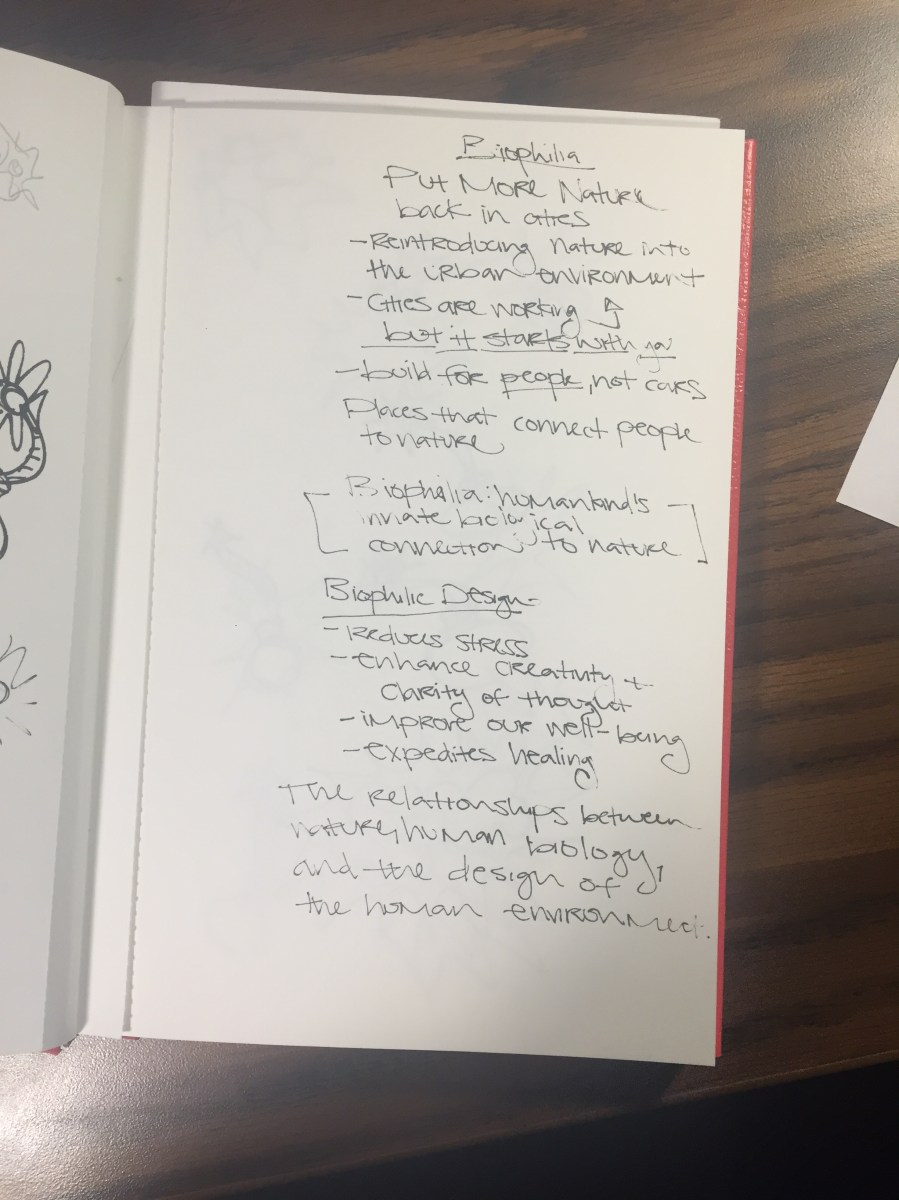 Biophilia
Put More Nature
back in cities
- Reintroducing nature into
the urban environment
- Cities are working ↑
but it starts with you
- build for people, not cars
Places that connect people
to nature
[Biophilia: humankind's
innate biological
connection to nature]
Biophilic Design -
- Reduces stress
- enhance creativity +
clarity of thought
- improve our well-being
- expedites healing
The relationships between
nature, human biology,
and the design of
the human environment.